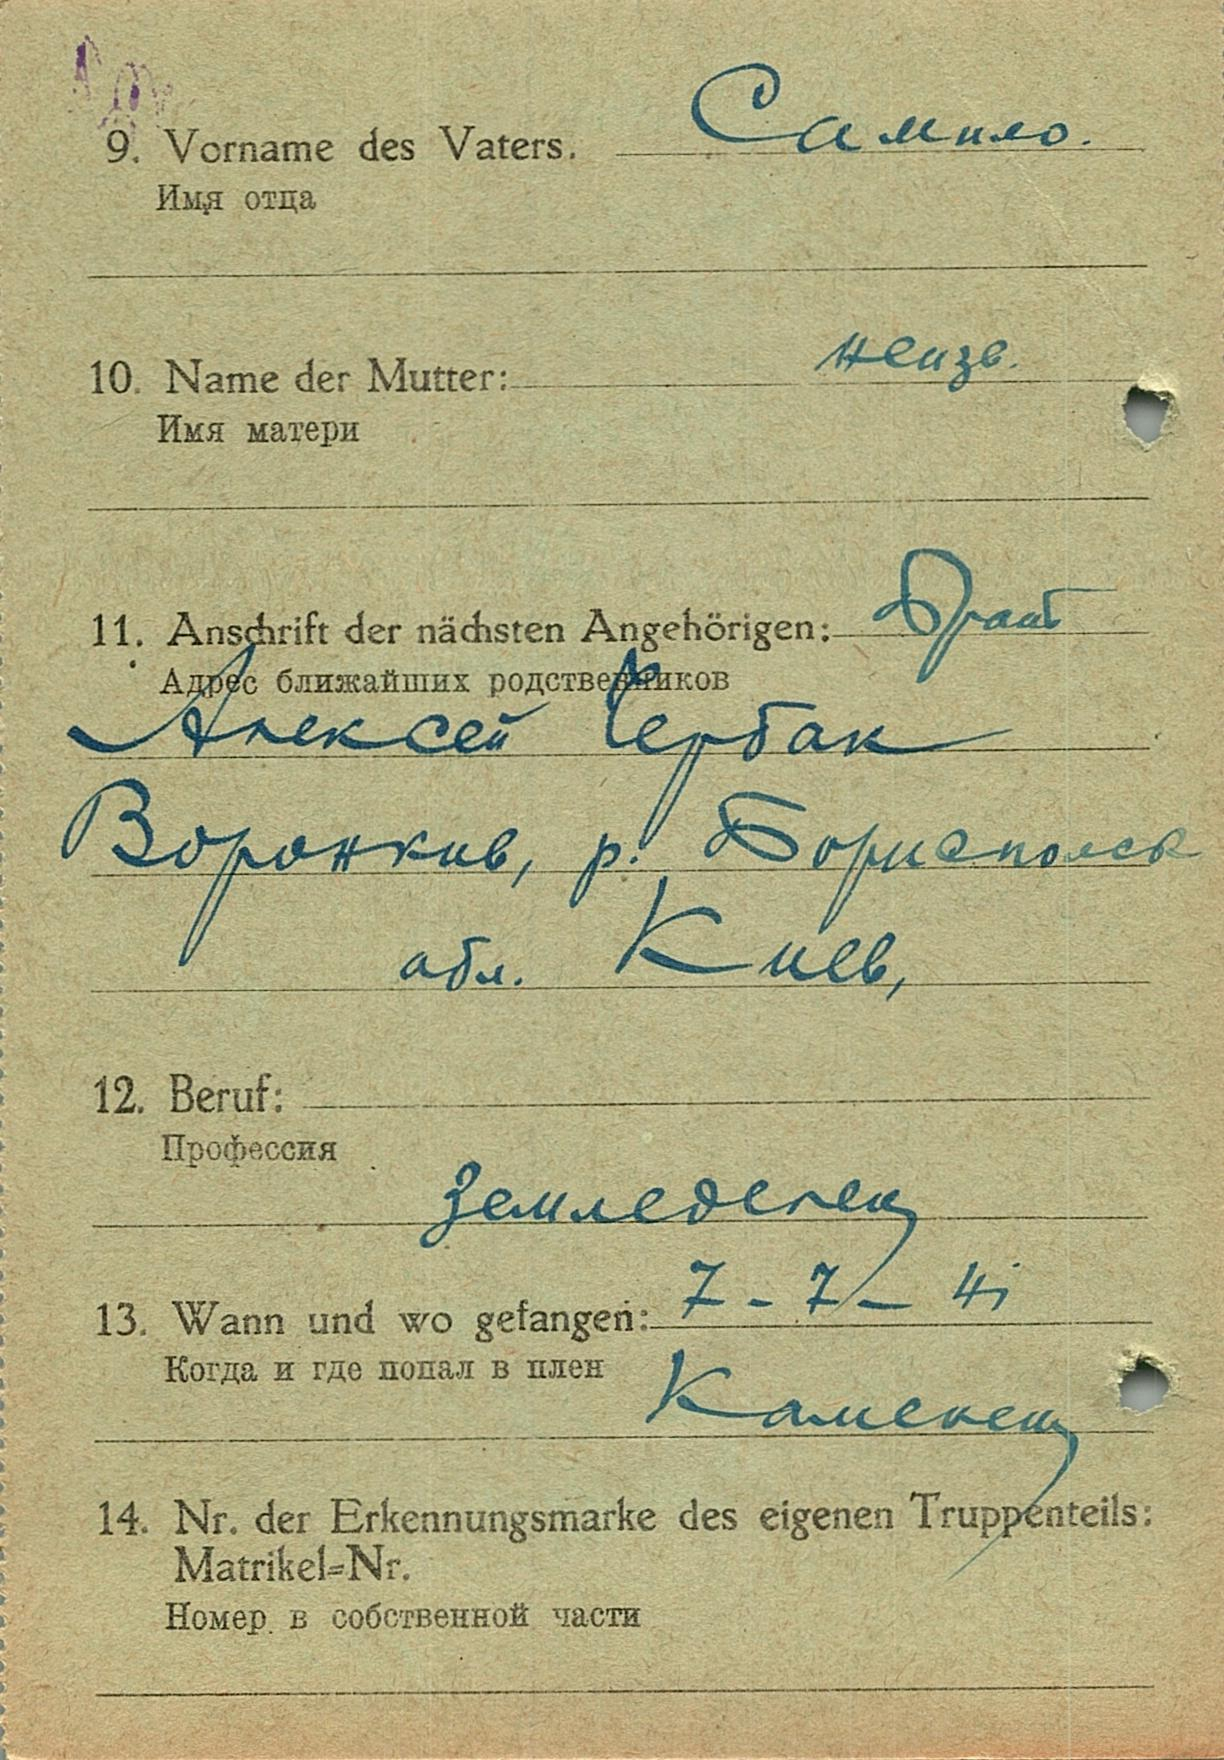 9. Vorname des Vaters. Самило.
Имя отца
10. Name der Mutter: неизв.
Имя матери
11. Anschrift der nächsten Angehörigen: Брат
Адрес ближайших родственников
Алексей Чербак
Воронкив, р. Бориспольск
обл. Киев,
12. Beruf:
Профессия
Земледелец
13. Wann und wo gefangen: 7-7-41
Когда и где попал в плен
Каменец
14. Nr. der Erkennungsmarke des eigenen Truppenteils:
Matrikel=Nr.
Номер в собственной части